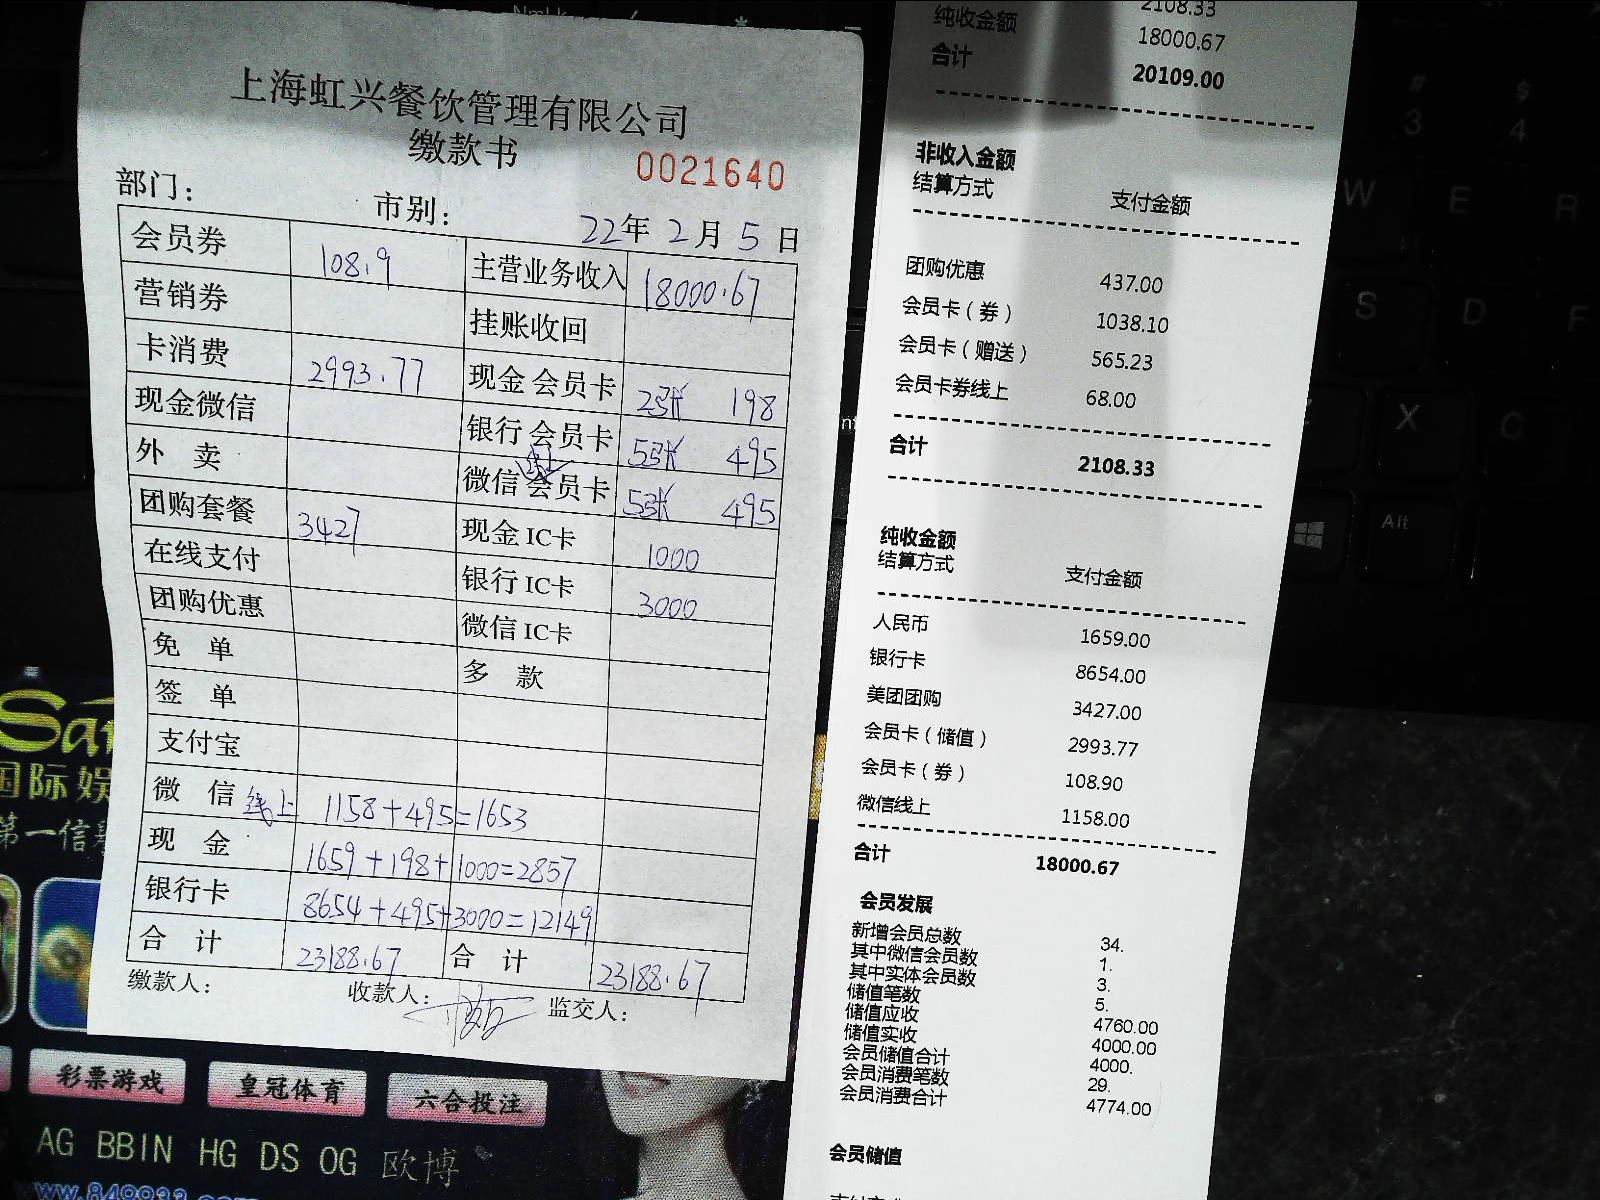 上海虹兴餐饮管理有限公司
缴款书
0021640
部门： 市别： 22年 2月 5日
会员券 108.9 主营业务收入 18000.67
营销券 挂账收回
卡消费 2993.77 现金 会员卡 2张 198
现金微信 银行 会员卡 5张 495
外 卖 微信 会员卡 5张 495
团购套餐 3427 现金 IC卡 1000
在线支付 银行 IC卡 3000
团购优惠 微信 IC卡
免 单 多 款
签 单
支付宝
微 信 线上 1158+495=1653
现 金 1659+198+1000=2857
银行卡 8654+495+3000=12149
合 计 23188.67 合 计 23188.67
缴款人： 收款人： 监交人：
2108.33
纯收金额 18000.67
合计 20109.00
非收入金额
结算方式 支付金额
团购优惠 437.00
会员卡（券） 1038.10
会员卡（赠送） 565.23
会员卡券线上 68.00
合计 2108.33
纯收金额
结算方式 支付金额
人民币 1659.00
银行卡 8654.00
美团团购 3427.00
会员卡（储值） 2993.77
会员卡（券） 108.90
微信线上 1158.00
合计 18000.67
会员发展
新增会员总数 34.
其中微信会员数 1.
其中实体会员数 3.
储值笔数 5.
储值应收 4760.00
储值实收 4000.00
会员储值合计 4000.
会员消费笔数 29.
会员消费合计 4774.00
会员储值
国际娱
第一信
彩票游戏 皇冠体育 六合投注
AG BBIN HG DS OG 欧博
#
3
$
4
W E R
S D F
X C
Alt